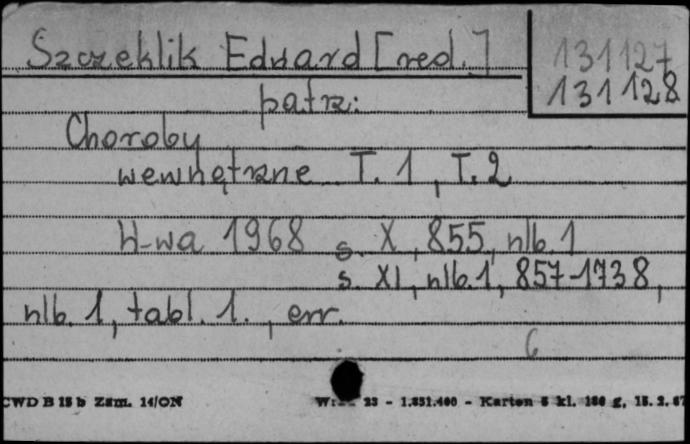 Szczeklik Edward [red.]
131127
131128
patrz:
Choroby
wewnętrzne T. 1, T. 2
W-wa 1968 s. X, 855, nlb. 1
s. XI, nlb. 1, 857-1738,
nlb. 1, tabl. 1., err.
6
CWD B 15 b Zam. 14/ON
23 - 1.831.400 - Karton kl. 180 g, 15. 2. 67